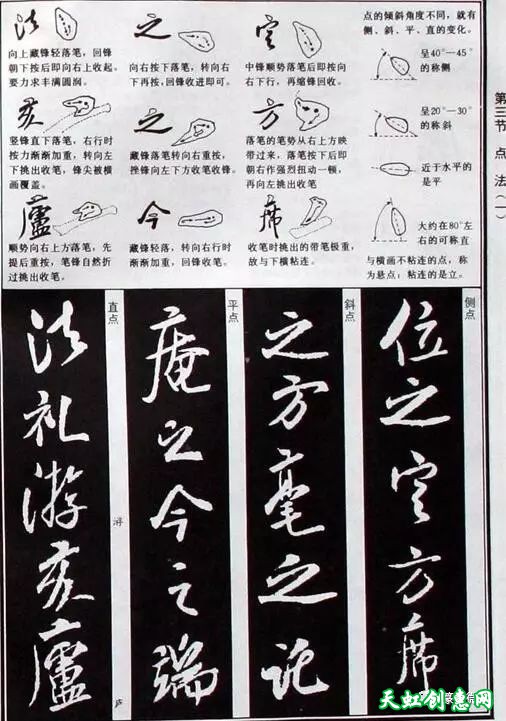 第三节 点法(一)
法
向上藏锋轻落笔，回锋
朝下按后即向右上收起。
要力求丰满圆润。
之
向右按下落笔，转向右
下再按，回锋收进即可。
定
中锋顺势落笔后即按向
右下行，再缩锋回收。
点的倾斜角度不同，就有
侧、斜、平、直的变化。
呈40°—45°
的称侧
亥
竖锋直下落笔，右行时
按力渐渐加重，转向左
下挑出收笔，锋尖被横
画覆盖。
之
藏锋落笔转向右重按，
挫锋向左下方收笔收锋。
方
落笔的笔势从右上方映
带过来，落笔按下后即
朝右作强烈扭动一顿，
再向左挑出收笔
呈20°—30°
的称斜
近于水平的
是平
廬
顺势向右上方落笔，先
提后重按，笔锋自然折
过挑出收笔。
今
藏锋轻落，转向右行时
渐渐加重，回锋收笔。
席
收笔时挑出的带笔极重，
故与下横粘连。
大约在80°左
右的可称直
与横画不粘连的点，称
为悬点；粘连的是立。
侧点
位之定方席
斜点
之方毫之託
平点
庵之今之端
直点
法礼游亥廬
庐
天虹创意网